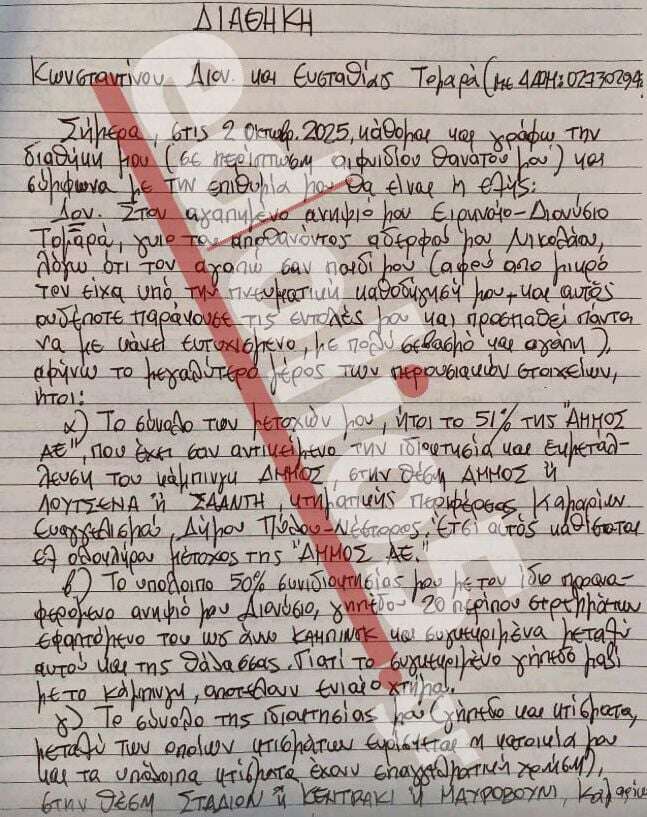 ΔΙΑΘΗΚΗ
Κωνσταντίνου Διον. και Ευσταθίας Τομαρά (με ΑΦΜ: 02730294
Σήμερα, στις 2 Οκτωβρ. 2025, κάθομαι και γράφω την
διαθήκη μου (σε περίπτωση αιφνιδίου θανάτου μου) και
σύμφωνα με την επιθυμία μου θα είναι η εξής:
Στον αγαπημένο ανηψιό μου Ειρηναίο-Διονύσιο
Τομαρά, γυιο του αποθανόντος αδερφού μου Νικολάου,
λόγω ότι τον αγαπώ σαν παιδί μου (αφού απο μικρό
τον είχα υπό την πνευματική καθοδήγησή μου, και αυτός
ουδέποτε παράκουσε τις εντολές μου και προσπαθεί πάντα
να με κάνει ευτυχισμένο, με πολύ σεβασμό και αγάπη),
αφήνω το μεγαλύτερο μέρος των περουσιακών στοιχείων,
ήτοι:
α) Το σύνολο των μετοχών μου, ήτοι το 51% της "ΑΜΜΟΣ
ΑΕ", που έχει σαν αντικείμενο την ιδιοκτησία και εκμετάλ-
λευση του κάμπινγκ ΑΜΜΟΣ, στην θέση ΑΜΜΟΣ ή
ΛΟΥΤΣΕΝΑ ή ΣΑΑΝΤΗ, κτηματικής περιφέρειας Καμαρίων
Ευαγγελισμού, Δήμου Πύλου-Νέστορος. Έτσι αυτός καθίσταται
εξ ολοκλήρου μέτοχος της "ΑΜΜΟΣ ΑΕ."
β) Το υπόλοιπο 50% συνιδιοκτησίας μου με τον ίδιο προανα-
φερόμενο ανηψιό μου Διονύσιο, γηπέδου 20 περίπου στρεμμάτων
εφαπτόμενο του ως άνω ΚΑΜΠΙΝΓΚ και συγκεκριμένα μεταξύ
αυτού και της θάλασσας. Γιατί το συγκεκριμένο γήπεδο μαζί
με το κάμπινγκ, αποτελούν ενιαίο κτήμα.
γ) Το σύνολο της ιδιοκτησίας μου (γήπεδο και κτίσματα,
μεταξύ των οποίων κτισμάτων ευρίσκεται η κατοικία μου
και τα υπόλοιπα κτίσματα έχουν επαγγελματική χρήση),
στην θέση ΣΤΑΔΙΟΝ ή ΚΕΝΤΡΑΚΙ ή ΜΑΥΡΟΒΟΥΝΙ,